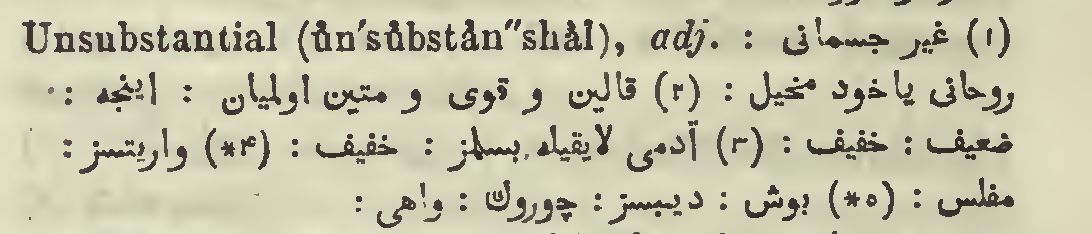 Unsubstantial (ŭn′sŭbstăn″shăl), adj. : (۱) غیر جسمانی
روحانی یاخود مخیل : (۲) قالین و قوی و متین اولمیان : اینجه :
ضعیف : خفیف : (۳) آدمی لایقیله بسلمز : خفیف : (۴*) واریتسز :
مفلس : (۵*) بوش : دیبسز : چوروك : واهی :